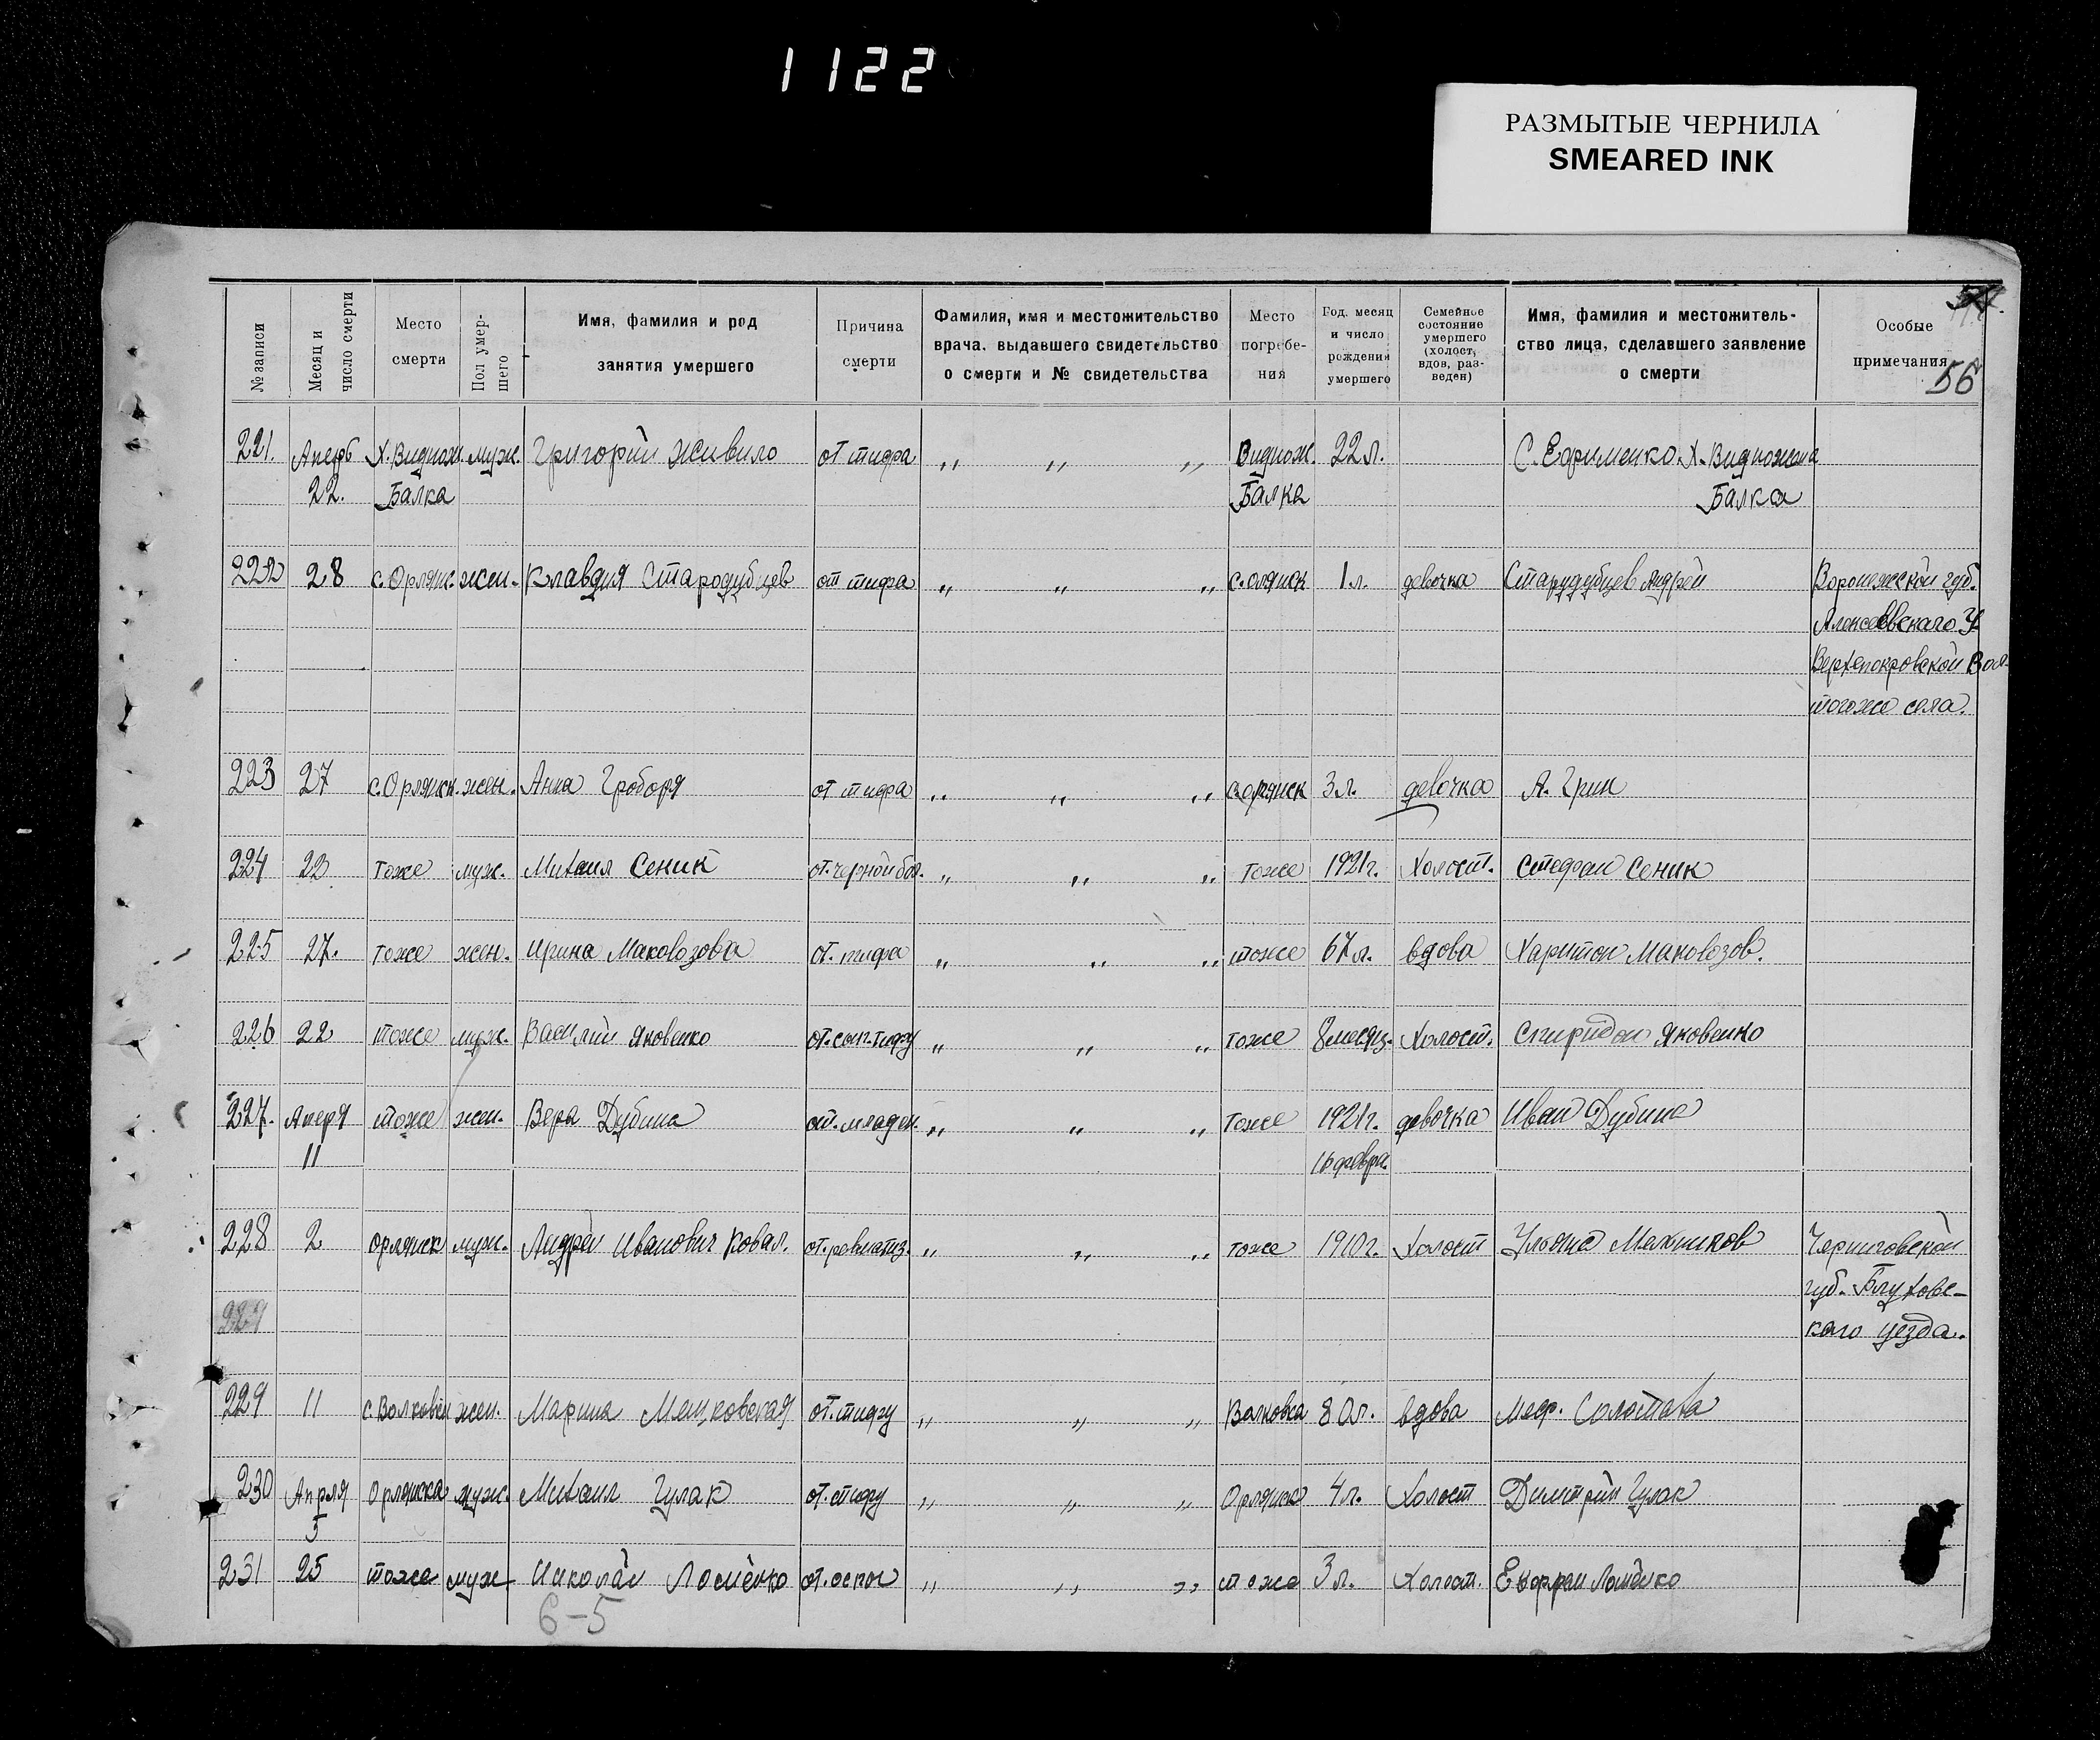 1122
РАЗМЫТЫЕ ЧЕРНИЛА
SMEARED INK
56
№ записи
Месяц и число смерти
Место смерти
Пол умершего
Имя, фамилия и род занятия умершего
Причина смерти
Фамилия, имя и местожительство врача, выдавшего свидетельство о смерти и № свидетельства
Место погребения
Год, месяц и число рождения умершего
Семейное состояние умершего (холост, вдов, разведен)
Имя, фамилия и местожительство лица, сделавшего заявление о смерти
Особые примечания
221. Х. Виднож. муж. Григорий Живило от тифа ,, ,, ,, Виднож. 22 л. С. Ефименко Х. Видножена
22. Балка Балка Балка
222 28 с. Орлянс. жен. Клавдия Стародубцев от тифа ,, ,, ,, 1 л. девочка Старудубцев Андрей Воронежской губ.
Алексеевскаго У
Верхепокровской Вол.
тогоже села.
223 27 с. Орлянск. жен. Анна Гроборя от тифа ,, ,, ,, 3 л. девочка А. Грин
224 23 тоже муж. Михаил Сеник от. черной бол. ,, ,, ,, тоже 1921 г. Холост. Стефан Сеник
225 27. тоже жен. Ирина Маковозова от. тифа ,, ,, ,, тоже 67 л. вдова Харитон Маковозов.
226 22 тоже муж. Василий Яковенко от. сып. тифу ,, ,, ,, тоже 8 месяц. Холост. Спиридон Яковенко
227. тоже жен. Вера Дубина от. младен. ,, ,, ,, тоже 1921 г. девочка Иван Дубина
11 16 февра.
228 2 Орлянск муж. Андрей Иванович Ковал. от. ревматиз. ,, ,, ,, тоже 1910 г. Холост Ульяна Черниговской
229 губ.
каго уезда.
229 11 с. Волковки жен. Марина от. тифу ,, ,, ,, Волковка 80 л. вдова Меф.
230 Апрля Орлянска муж. Михаил Гулак от. тифу ,, ,, ,, Орлянск 4 л. Холост Димитрий Гулак
5
231 25 тоже муж Николай от. оспы ,, ,, ,, тоже 3 л. Холост.
6-5